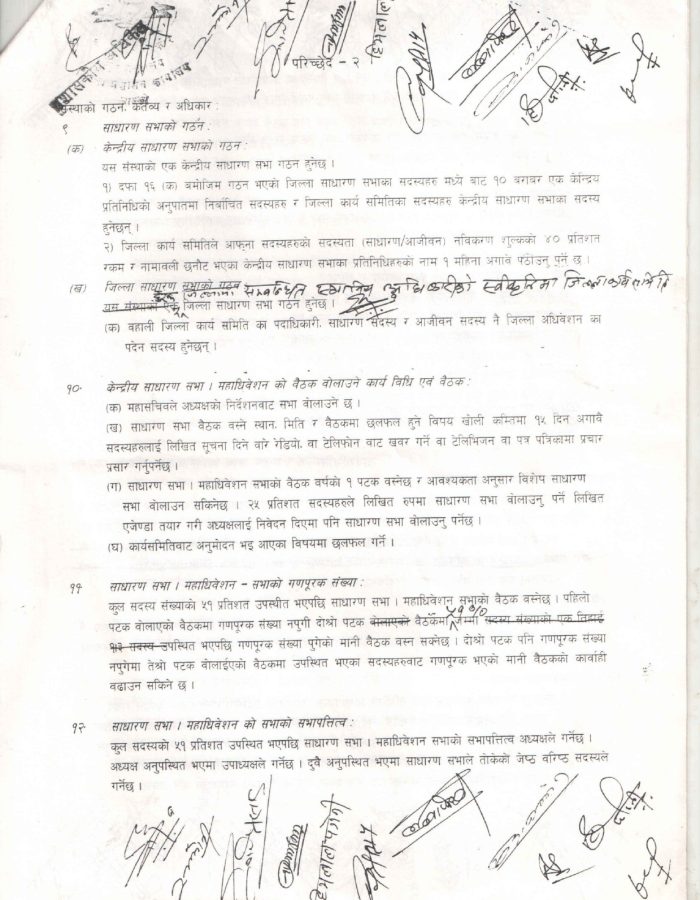 हिमलाल
परिच्छेद - २
संस्थाको गठन, कर्तव्य र अधिकार :
९ साधारण सभाको गठन :
(क) केन्द्रीय साधारण सभाको गठन :
यस संस्थाको एक केन्द्रीय साधारण सभा गठन हुनेछ ।
१) दफा १६ (क) बमोजिम गठन भएको जिल्ला साधारण सभाका सदस्यहरु मध्ये बाट १० बराबर एक केन्द्रिय
प्रतिनिधिको अनुपातमा निर्वाचित सदस्यहरु र जिल्ला कार्य समितिका सदस्यहरु केन्द्रीय साधारण सभाका सदस्य
हुनेछन् ।
२) जिल्ला कार्य समितिले आफुना सदस्यहरुको सदस्यता (साधारण/आजीवन) नविकरण शुल्कको ४० प्रतिशत
रकम र नामावली छनौट भएका केन्द्रीय साधारण सभाका प्रतिनिधिहरुको नाम १ महिना अगावै पठाउनु पर्ने छ ।
(ख) जिल्ला साधारण सभाको गठन
जिल्लामा सम्बन्धित स्थानिय अधिकारीको स्वीकृतिमा जिल्ला कार्य समिति
यस संस्थाको एक जिल्ला साधारण सभा गठन हुनेछ ।
(क) वहाली जिल्ला कार्य समिति का पदाधिकारी, साधारण सदस्य र आजीवन सदस्य नै जिल्ला अधिवेशन का
पदेन सदस्य हुनेछन् ।
१०. केन्द्रीय साधारण सभा । महाधिवेशन को वैठक वोलाउने कार्य विधि एवं वैठक :
(क) महासचिवले अध्यक्षको निर्देशनवाट सभा वोलाउने छ ।
(ख) साधारण सभा वैठक वस्ने स्थान, मिति र वैठकमा छलफल हुने विषय खोली कम्तिमा १५ दिन अगावै
सदस्यहरुलाई लिखित सूचना दिने वारे रेडियो, वा टेलिफोन वाट खवर गर्ने वा टेलिभिजन वा पत्र पत्रिकामा प्रचार
प्रसार गर्नुपर्नेछ ।
(ग) साधारण सभा । महाधिवेशन सभाको वैठक वर्षको १ पटक वस्नेछ र आवश्यकता अनुसार विशेष साधारण
सभा वोलाउन सकिनेछ । २५ प्रतिशत सदस्यहरुले लिखित रुपमा साधारण सभा वोलाउनु पर्ने लिखित
एजेण्डा तयार गरी अध्यक्षलाई निवेदन दिएमा पनि साधारण सभा वोलाउनु पर्नेछ ।
(घ) कार्यसमितिवाट अनुमोदन भइ आएका विषयमा छलफल गर्ने ।
११ साधारण सभा । महाधिवेशन – सभाको गणपूरक संख्या :
कुल सदस्य संख्याको ५१ प्रतिशत उपस्थीत भएपछि साधारण सभा । महाधिवेशन सभाको वैठक वस्नेछ । पहिलो
५१%
पटक वोलाएको वैठकमा गणपूरक संख्या नपुगी दोश्रो पटक वोलाएको वैठकमा जम्मी सदस्य संख्याको एक तिहाई
१/३ सदस्य उपस्थित भएपछि गणपूरक संख्या पुगेको मानी वैठक वस्न सक्नेछ । दोश्रो पटक पनि गणपूरक संख्या
नपुगेमा तेश्रो पटक वोलाईएको वैठकमा उपस्थित भएका सदस्यहरुवाट गणपूरक भएको मानी वैठकको कार्वाही
वढाउन सकिने छ ।
१२ साधारण सभा । महाधिवेशन को सभाको सभापत्तित्व :
कुल सदस्यको ५१ प्रतिशत उपस्थित भएपछि साधारण सभा । महाधिवेशन सभाको सभापत्तित्व अध्यक्षले गर्नेछ ।
अध्यक्ष अनुपस्थित भएमा उपाध्यक्षले गर्नेछ । दुवै अनुपस्थित भएमा साधारण सभाले तोकेको जेष्ठ वरिष्ठ सदस्यले
गर्नेछ ।
हिमलाल